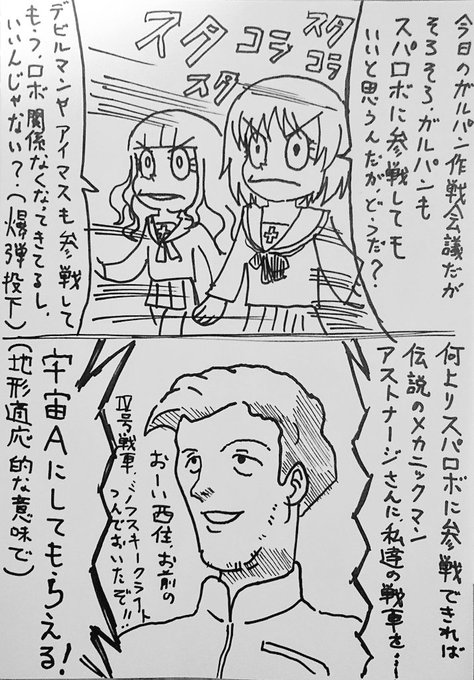 今日のガルパン作戦会議だが
そろそろ、ガルパンも
スパロボに参戦しても
いいと思うんだがどうだ?
スタ
コラ
スタ
コラ
イタ
スタ
デビルマンやアイマスも参戦して
もう、ロボ関係なくなってきてるし、
いいんじゃない?(爆弾投下)
何よりスパロボに参戦できれば
伝説のメカニックマン
アストナージさんに、私達の戦車を…
おーい西住、お前の
Ⅳ号戦車、ミノフスキークラフト
つんでおいたぞ!!
宇宙Aにしてもらえる!
(地形適応的な意味で)